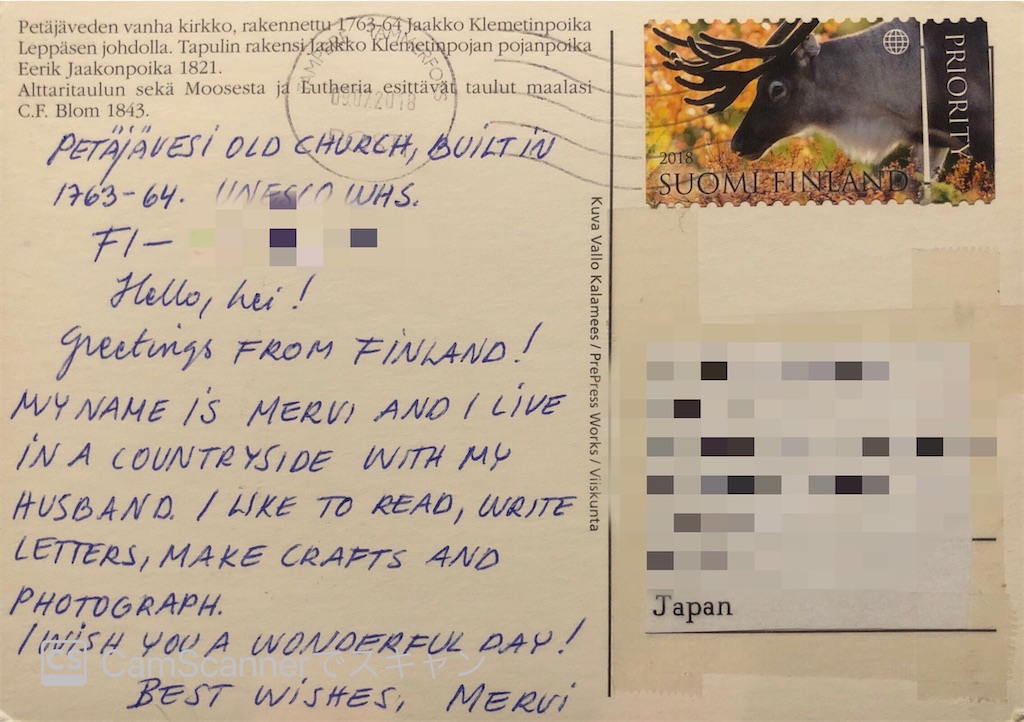 Petäjäveden vanha kirkko, rakennettu 1763-64 Jaakko Klemetinpoika
Leppäsen johdolla. Tapulin rakensi Jaakko Klemetinpojan pojanpoika
Eerik Jaakonpoika 1821.
Alttaritaulun sekä Moosesta ja Lutheria esittävät taulut maalasi
C.F. Blom 1843.
PETÄJÄVESI OLD CHURCH, BUILT IN
1763-64. UNESCO WHS.
FI-
Hello, hei!
Greetings FROM FINLAND!
MY NAME IS MERVI AND I LIVE
IN A COUNTRYSIDE WITH MY
HUSBAND. I LIKE TO READ, WRITE
LETTERS, MAKE CRAFTS AND
PHOTOGRAPH.
I WISH YOU A WONDERFUL DAY!
BEST WISHES, MERVI
CS CamScanner でスキャン
TAMMERFORS
09.07.2018
Kuva Vallo Kalamees / PrePress Works / Viiskunta
PRIORITY
2018
SUOMI FINLAND
Japan